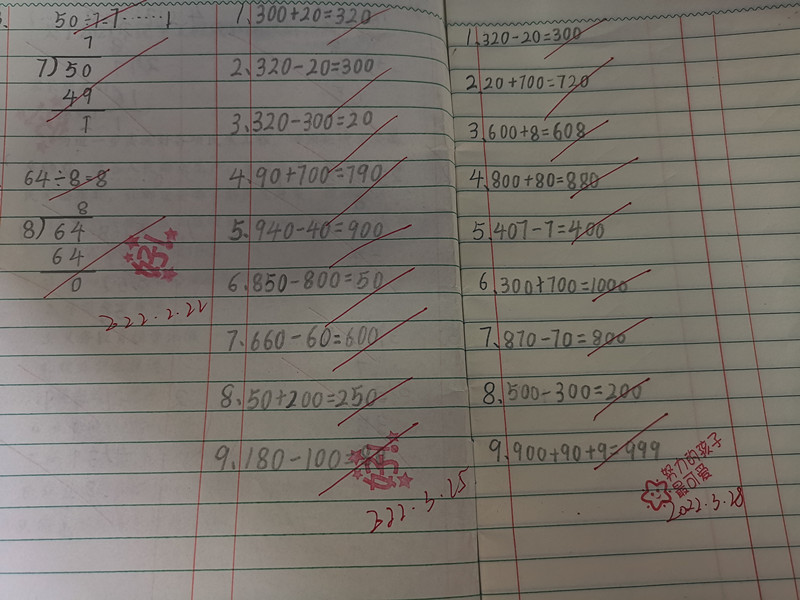 50÷7=7······1
7
7)50
49
1
64÷8=8
8
8)64
64
0
好!
222.2.22
1、300+20=320
2、320-20=300
3、320-300=20
4、90+700=790
5、940-40=900
6、850-800=50
7、660-60=600
8、50+200=250
9、180-100=
好!
222.3.25
1、320-20=300
2、20+700=720
3、600+8=608
4、800+80=880
5、407-7=400
6、300+700=1000
7、870-70=800
8、500-300=200
9、900+90+9=999
努力的孩子
最可爱
2022.3.28